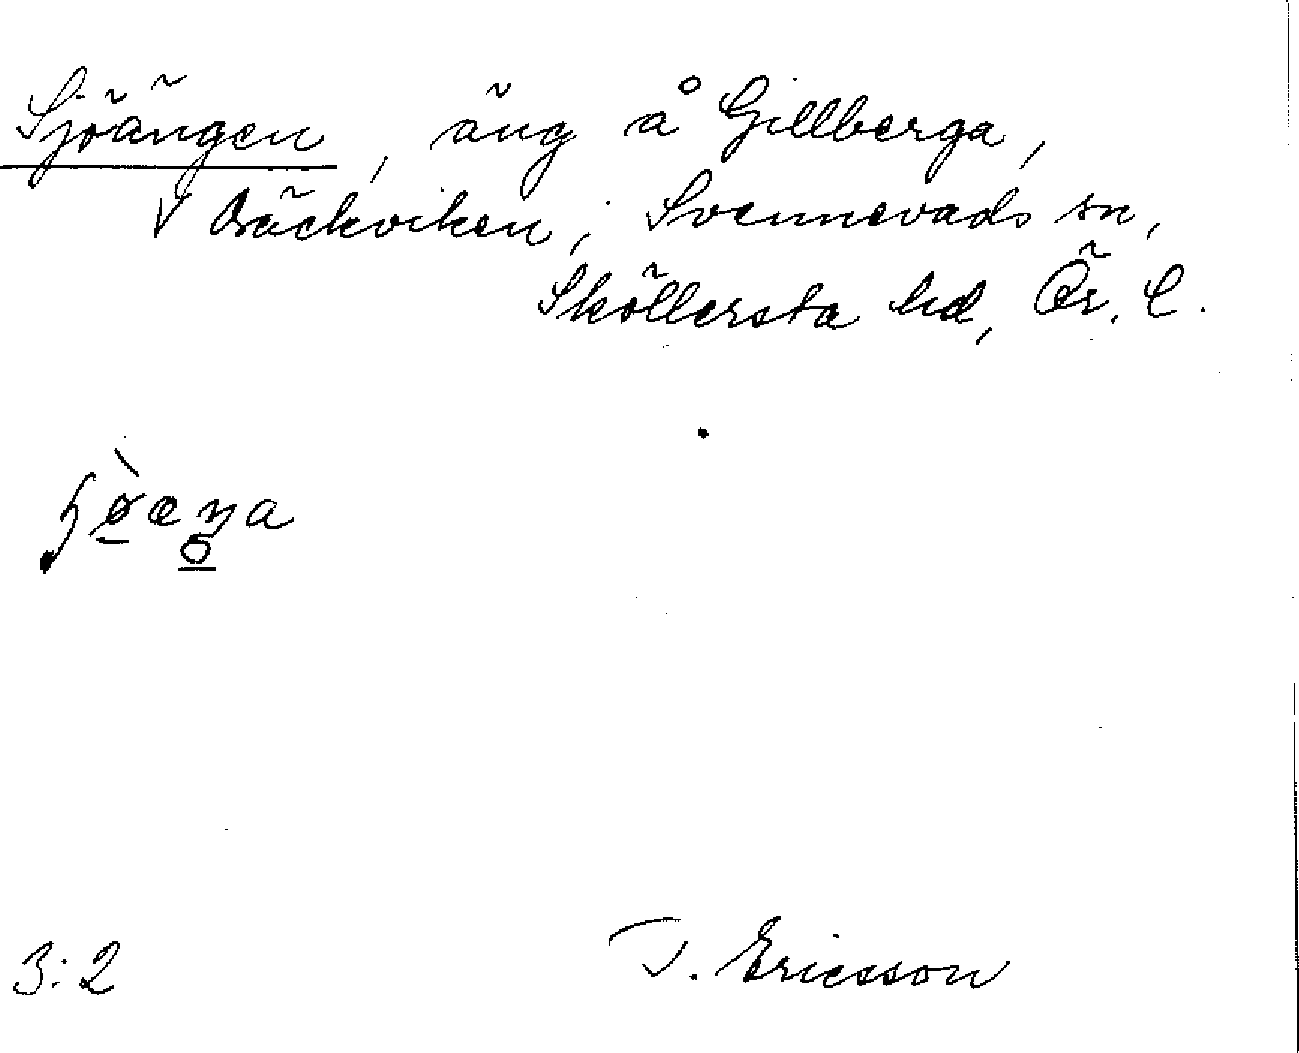 Sjöängen, äng å Gillberga,
V Bäckviken, Svennevads sn,
Sköllersta hd, Ör. l.
3:2
T. Ericsson